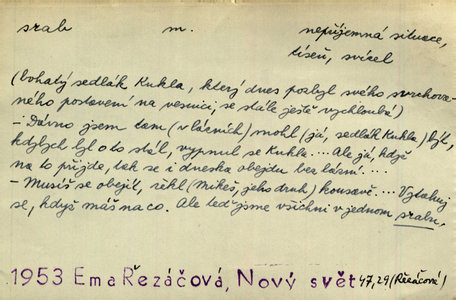 srab m. nepříjemná situace,
tíseň, svízel
(bohatý sedlák Kukla, který dnes pozbyl svého svrchova-
ného postavení na vesnici, se stále ještě vychloubá)
- Dávno jsem tam (v lázních) mohl (já, sedlák Kukla) být,
kdybych byl o to stál, vypnul se Kukla. ... Ale já, když
na to přijde, tak se i dneska obejdu bez lázní. ...
- Musíš se obejít, řekl (Mikeš, jeho druh) kousavě. ... Vztahuj
se, když máš na co. Ale teď jsme všichni v jednom srabu.
1953 Ema Řezáčová, Nový svět 47,29 (Řezáčová)